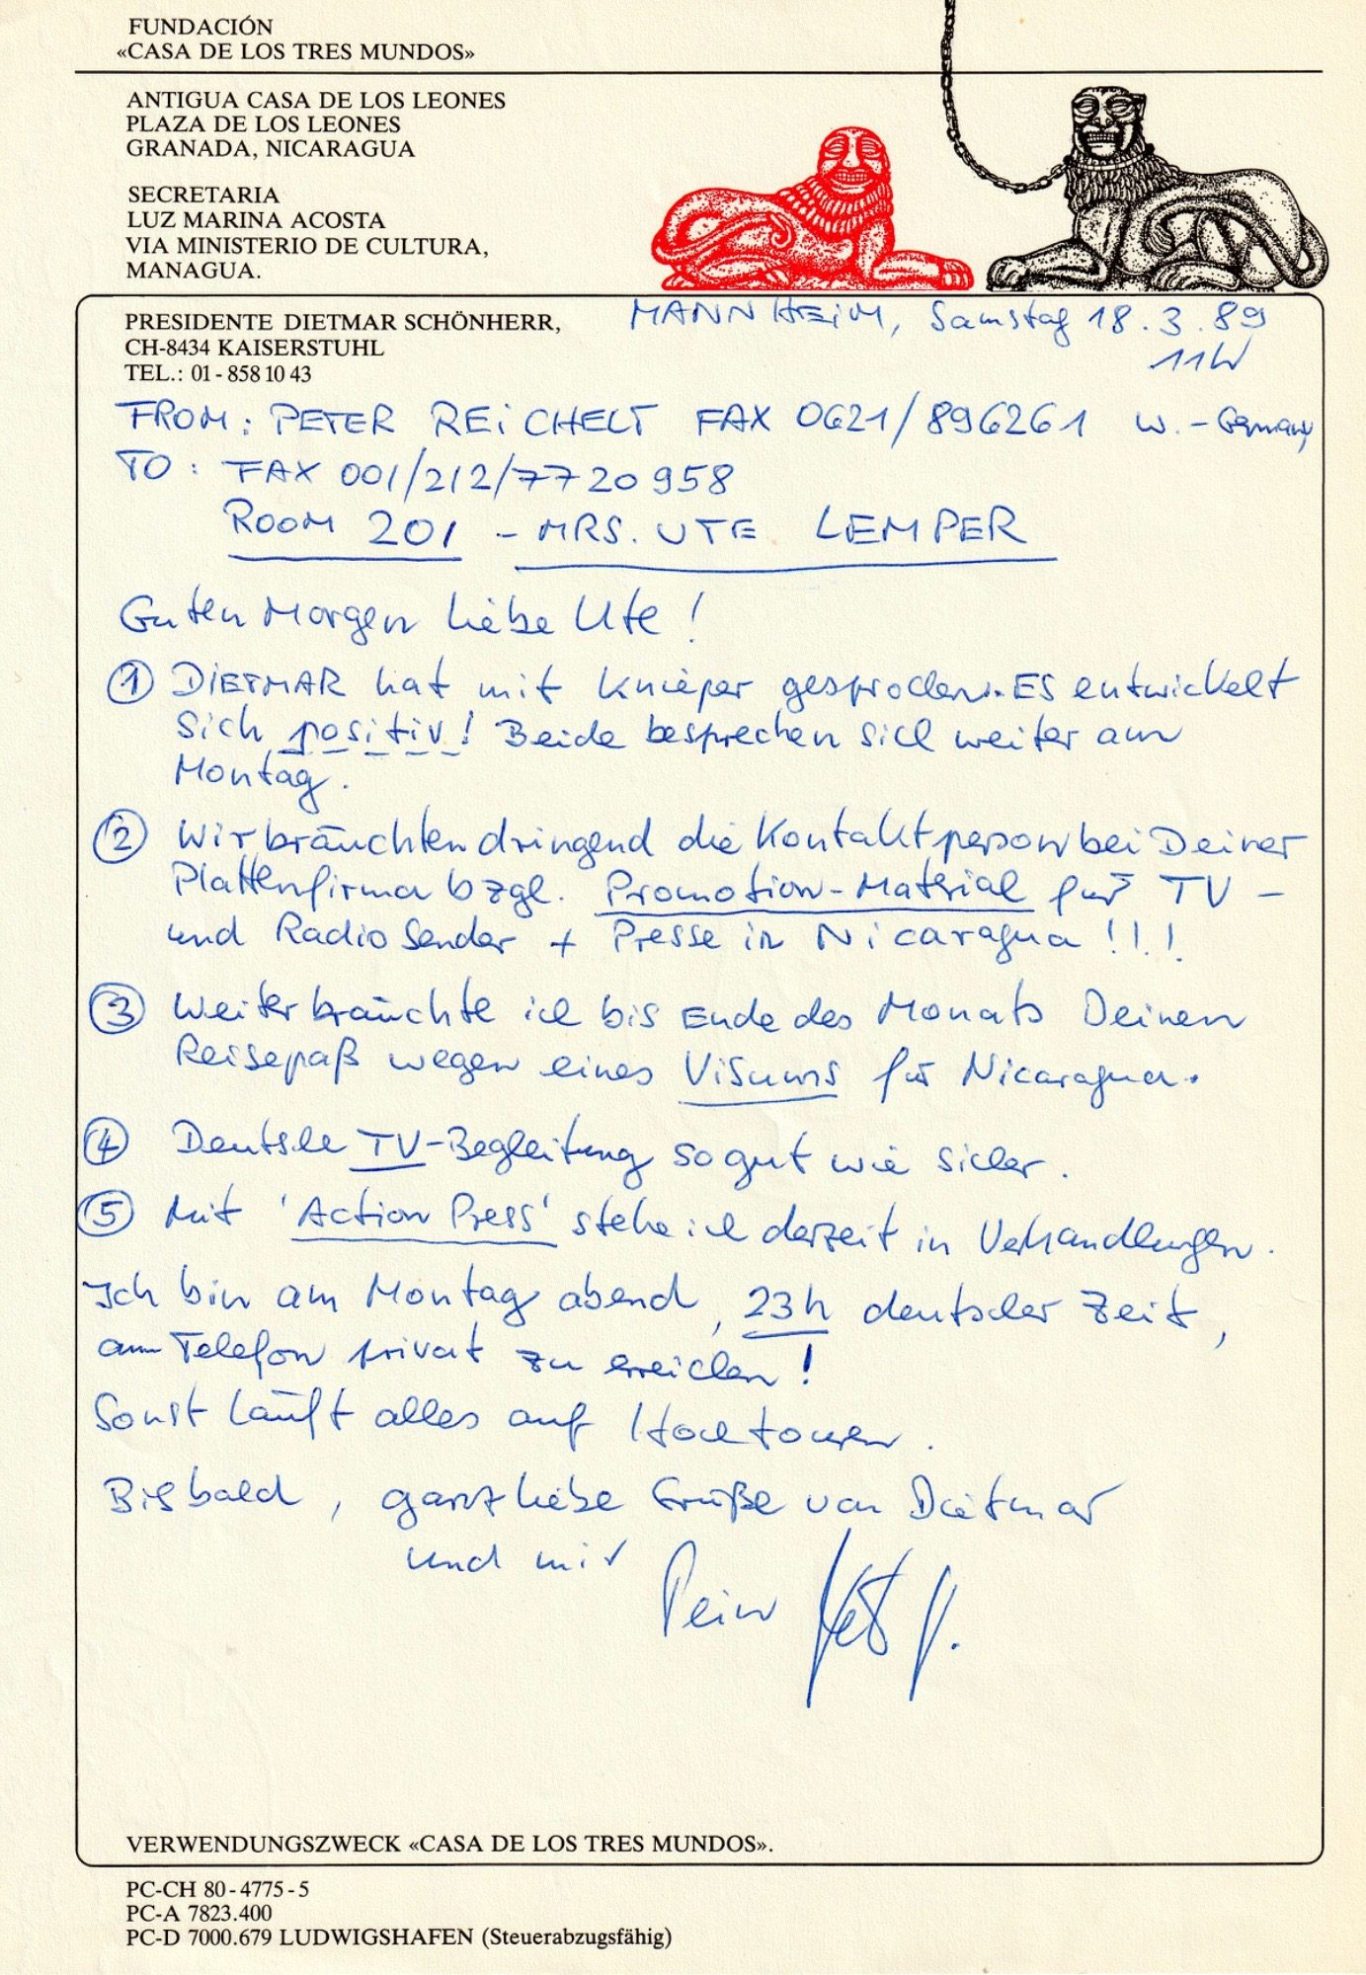 FUNDACIÓN
«CASA DE LOS TRES MUNDOS»
ANTIGUA CASA DE LOS LEONES
PLAZA DE LOS LEONES
GRANADA, NICARAGUA
SECRETARIA
LUZ MARINA ACOSTA
VIA MINISTERIO DE CULTURA,
MANAGUA.
PRESIDENTE DIETMAR SCHÖNHERR,
CH-8434 KAISERSTUHL
TEL.: 01 - 858 10 43
MANNHEIM, Samstag 18.3.89
11h
FROM: PETER REICHELT FAX 0621/896261 W.-Germany
TO: FAX 001/212/7720958
ROOM 201 - MRS. UTE LEMPER
Guten Morgen liebe Ute!
① DIETMAR hat mit Knieper gesprochen. ES entwickelt
sich positiv! Beide besprechen sich weiter am
Montag.
② Wir bräuchten dringend die Kontaktperson bei Deiner
Plattenfirma bzgl. Promotion-Material für TV -
und Radio Sender + Presse in Nicaragua!!!
③ Weiter bräuchte ich bis Ende des Monats Deinen
Reisepaß wegen eines Visums für Nicaragua.
④ Deutsche TV-Begleitung so gut wie sicher.
⑤ Mit 'Action Press' stehe ich derzeit in Verhandlungen.
Ich bin am Montag abend, 23h deutscher Zeit,
am Telefon privat zu erreichen!
Sonst läuft alles auf Hochtouren.
Bis bald, ganz liebe Grüße von Dietmar
und mir
Dein
VERWENDUNGSZWECK «CASA DE LOS TRES MUNDOS».
PC-CH 80-4775-5
PC-A 7823.400
PC-D 7000.679 LUDWIGSHAFEN (Steuerabzugsfähig)